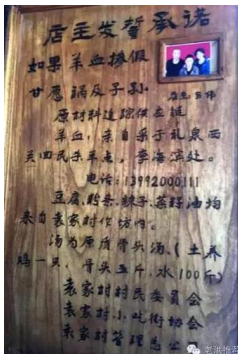 店主发誓承诺
如果羊血掺假
甘愿祸及子孙
原材料追踪供应链
羊血，亲自采于礼泉西
关回民杀羊点，李海滨处。
电话：13992000111
豆腐、粉条、辣子、菜籽油均
来自袁家村作坊内。
汤为原质骨头汤，（土养
鸡一只，骨头五斤，水100斤）
袁家村村民委员会
袁家村小吃街协会
袁家村管理办公